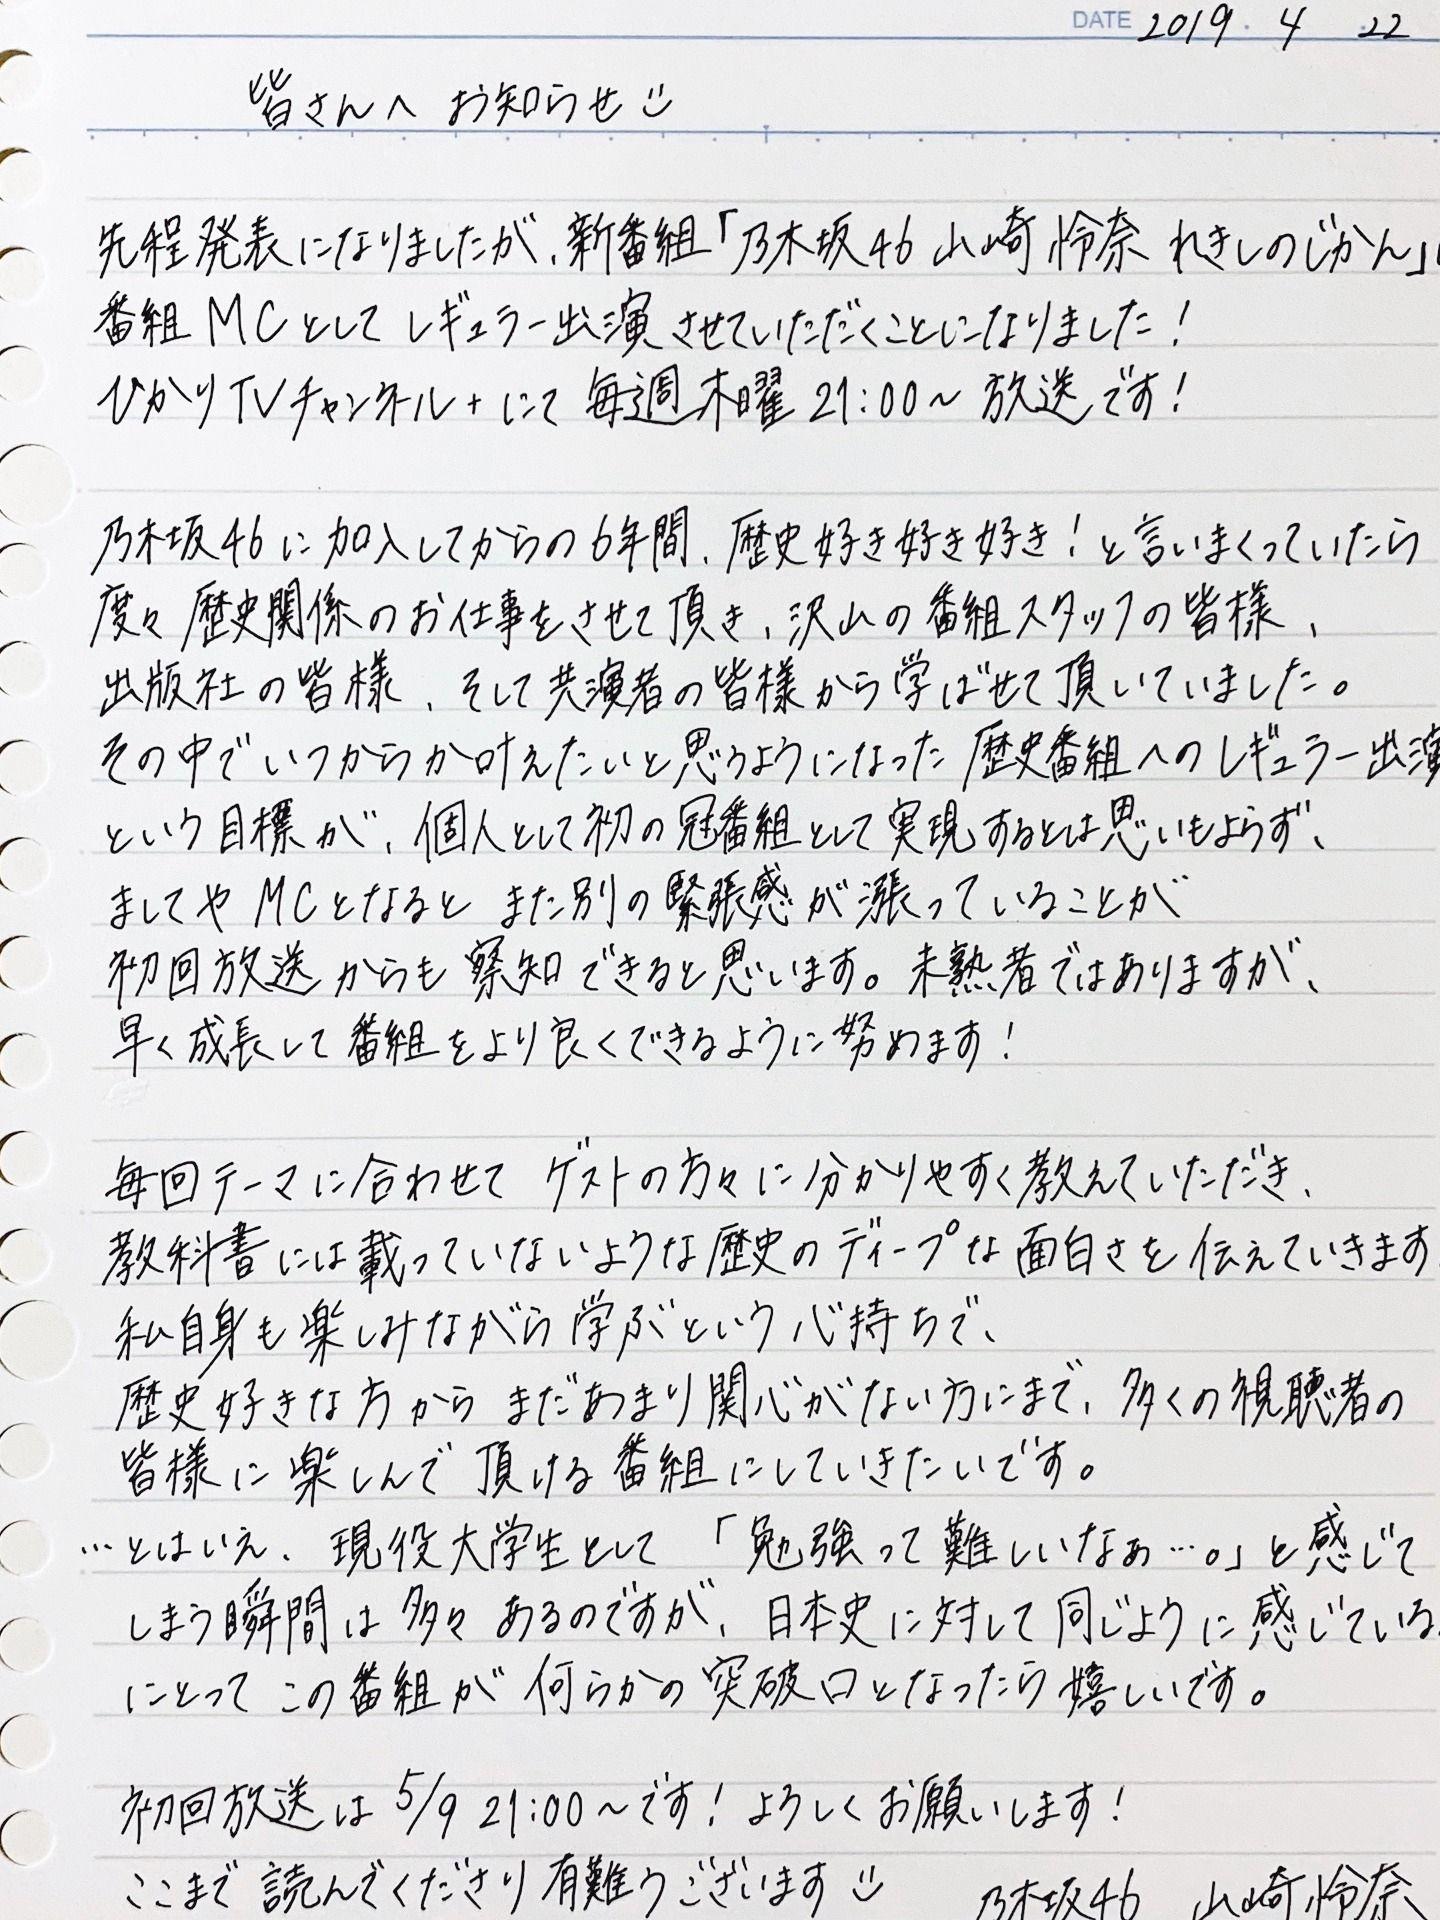 DATE 2019. 4 .22
皆さんへ お知らせ
先程発表になりましたが、新番組「乃木坂46 山崎怜奈 れきしのじかん」に
番組MCとして レギュラー出演させていただくことになりました!
ひかりTVチャンネル+にて 毎週木曜21:00~ 放送です!
乃木坂46に加入してからの6年間、歴史好き好き好き!と言いまくっていたら
度々 歴史関係のお仕事をさせて頂き、沢山の番組スタッフの皆様、
出版社の皆様、そして共演者の皆様から学ばせて頂いていました。
その中でいつからか叶えたいと思うようになった歴史番組へのレギュラー出演
という目標が、個人として初の冠番組として実現するとは思いもよらず、
ましてやMCとなると また別の緊張感が漲っていることが
初回放送からも察知できると思います。未熟者ではありますが、
早く成長して番組をより良くできるように努めます!
毎回テーマに合わせて ゲストの方々に分かりやすく教えていただき、
教科書には載っていないような歴史のディープな面白さを伝えていきます
私自身も楽しみながら学ぶという心持ちで、
歴史好きな方から まだあまり関心がない方にまで、多くの視聴者の
皆様に楽しんで頂ける番組にしていきたいです。
…とはいえ、現役大学生として 「勉強って難しいなぁ…。」と感じて
しまう瞬間は多々あるのですが、日本史に対して同じように感じている
にとって この番組が何らかの突破口となったら嬉しいです。
初回放送は 5/9 21:00~です! よろしくお願いします!
ここまで読んでくださり有難うございます
乃木坂46 山崎怜奈